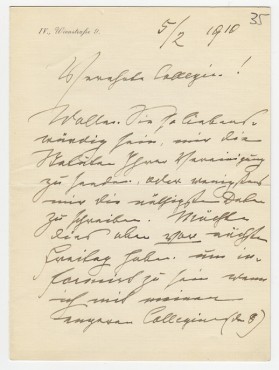 35
IV., Wienstraße 9.
5/2 1910
Verehrte Collegin!
Wollen Sie so liebens-
würdig sein, mir die
Statuten Ihrer Vereinigung
zu senden, oder wenigstens
mir die nötigsten Daten
zu schreiben. Möchte
dies aber vor nächsten
Freitag haben, um in-
formiert zu sein wenn
ich mit meinen
engeren Collegin